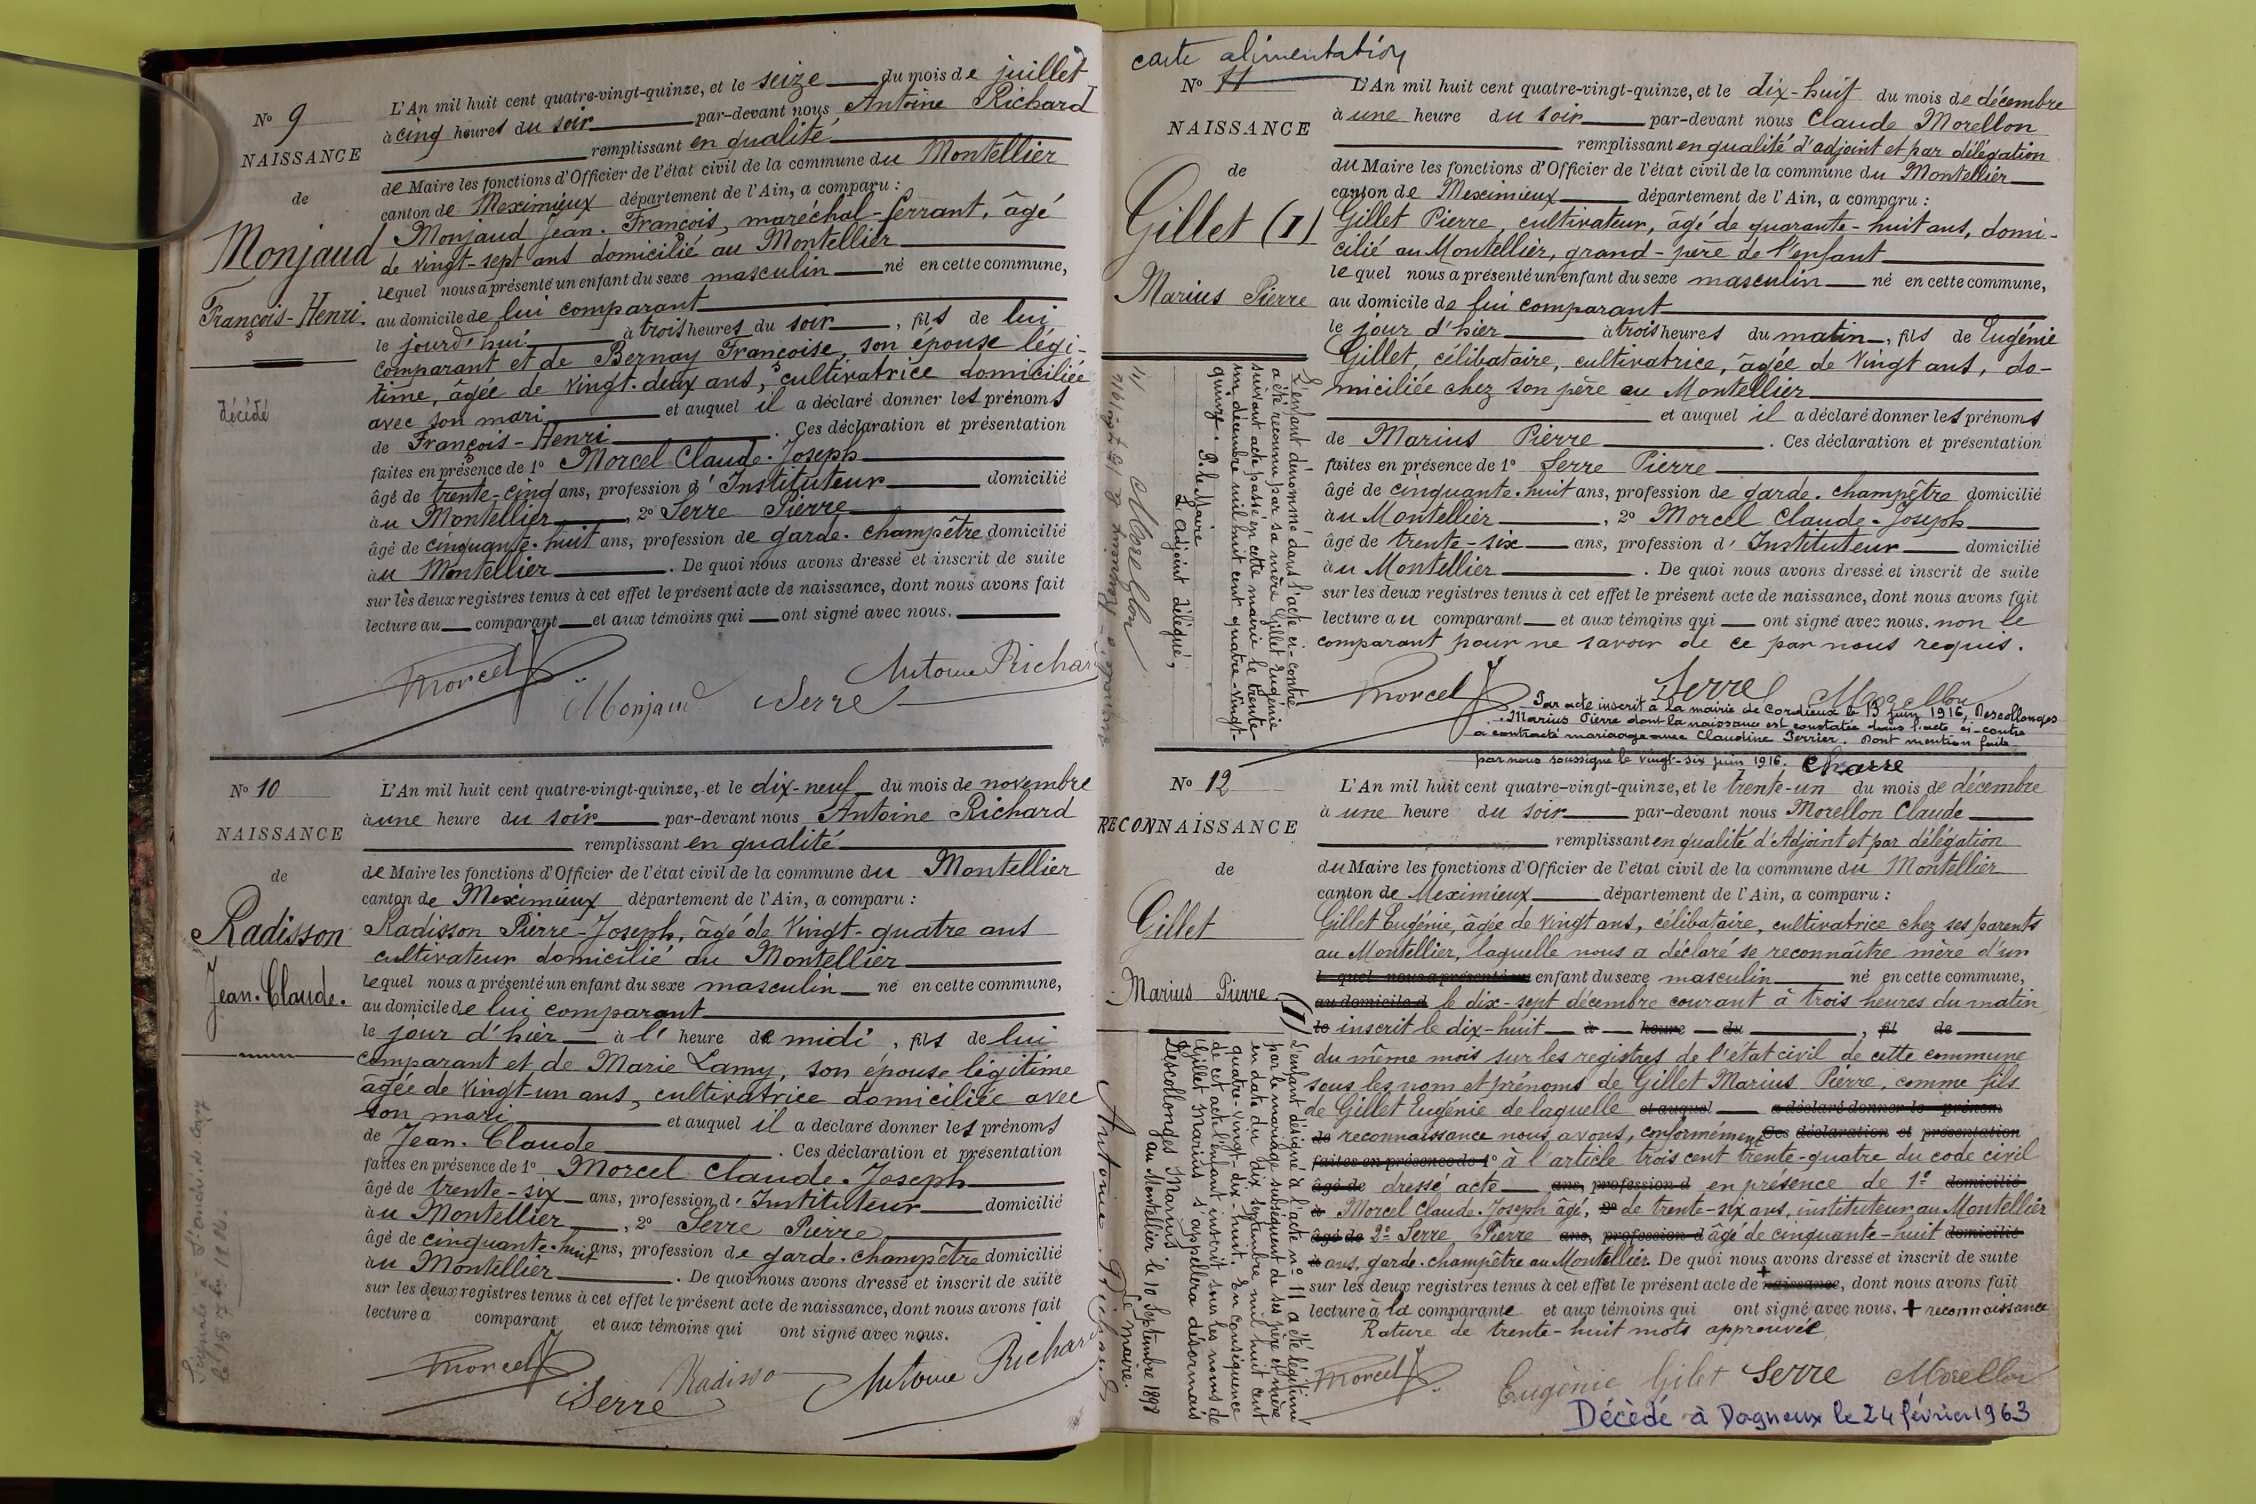 N° 9
NAISSANCE
de
Monjaud
François-Henri.
décédé
L'An mil huit cent quatre-vingt-quinze, et le seize du mois de juillet
à cinq heures du soir par-devant nous Antoine Richard
remplissant en qualité
de Maire les fonctions d'Officier de l'état civil de la commune du Montellier
canton de Meximieux département de l'Ain, a comparu :
Monjaud Jean-François, maréchal-ferrant, âgé
de vingt-sept ans domicilié au Montellier
lequel nous a présenté un enfant du sexe masculin né en cette commune,
au domicile de lui comparant
le jourd'hui à trois heures du soir, fils de lui
comparant et de Bernay Françoise, son épouse légi-
time, âgée de vingt-deux ans, cultivatrice domiciliée
avec son mari et auquel il a déclaré donner les prénoms
de François-Henri. Ces déclaration et présentation
faites en présence de 1° Morcel Claude-Joseph
âgé de trente-cinq ans, profession d'Instituteur domicilié
au Montellier, 2° Serre Pierre
âgé de cinquante-huit ans, profession de garde-champêtre domicilié
au Montellier. De quoi nous avons dressé et inscrit de suite
sur les deux registres tenus à cet effet le présent acte de naissance, dont nous avons fait
lecture au comparant et aux témoins qui ont signé avec nous.
Morcel Monjaud Serre Antoine Richard
N° 10
NAISSANCE
de
Radisson
Jean-Claude.
L'An mil huit cent quatre-vingt-quinze, et le dix-neuf du mois de novembre
à une heure du soir par-devant nous Antoine Richard
remplissant en qualité
de Maire les fonctions d'Officier de l'état civil de la commune du Montellier
canton de Meximieux département de l'Ain, a comparu :
Radisson Pierre-Joseph, âgé de vingt-quatre ans
cultivateur domicilié au Montellier
lequel nous a présenté un enfant du sexe masculin né en cette commune,
au domicile de lui comparant
le jour d'hier à l' heure de midi, fils de lui
comparant et de Marie Lamy, son épouse légitime
âgée de vingt-un ans, cultivatrice domiciliée avec
son mari et auquel il a déclaré donner les prénoms
de Jean-Claude. Ces déclaration et présentation
faites en présence de 1° Morcel Claude-Joseph
âgé de trente-six ans, profession d'Instituteur domicilié
au Montellier, 2° Serre Pierre
âgé de cinquante-huit ans, profession de garde-champêtre domicilié
au Montellier. De quoi nous avons dressé et inscrit de suite
sur les deux registres tenus à cet effet le présent acte de naissance, dont nous avons fait
lecture a comparant et aux témoins qui ont signé avec nous.
Morcel Serre Radisso Antoine Richard
carte alimentation
N° 11
NAISSANCE
de
Gillet (1)
Marius Pierre
L'An mil huit cent quatre-vingt-quinze, et le dix-huit du mois de décembre
à une heure du soir par-devant nous Claude Morellon
remplissant en qualité d'adjoint et par délégation
du Maire les fonctions d'Officier de l'état civil de la commune du Montellier
canton de Meximieux département de l'Ain, a comparu :
Gillet Pierre, cultivateur, âgé de quarante-huit ans, domi-
cilié au Montellier, grand-père de l'enfant
lequel nous a présenté un enfant du sexe masculin né en cette commune,
au domicile de lui comparant
le jour d'hier à trois heures du matin, fils de Eugénie
Gillet, célibataire, cultivatrice, âgée de vingt ans, do-
miciliée chez son père au Montellier
et auquel il a déclaré donner les prénoms
de Marius Pierre. Ces déclaration et présentation
faites en présence de 1° Serre Pierre
âgé de cinquante-huit ans, profession de garde-champêtre domicilié
au Montellier, 2° Morcel Claude-Joseph
âgé de trente-six ans, profession d'Instituteur domicilié
au Montellier. De quoi nous avons dressé et inscrit de suite
sur les deux registres tenus à cet effet le présent acte de naissance, dont nous avons fait
lecture au comparant et aux témoins qui ont signé avec nous. non le
comparant pour ne savoir de ce par nous requis.
Morcel Serre Morellon
L'enfant dénommé dans l'acte ci-contre
a été reconnu par sa mère Gillet Eugénie
suivant acte passé en cette mairie le trente-
un décembre mil huit cent quatre-vingt-
quinze. P. le Maire
L'adjoint délégué,
Morellon
Par acte inscrit à la mairie de Cordieux le 13 juin 1916, Descollonges
Marius Pierre dont la naissance est constatée dans l'acte ci-contre
a contracté mariage avec Claudine Perrier. Dont mention faite
par nous soussigné le vingt-six juin 1916.
N° 12
RECONNAISSANCE
de
Gillet
Marius Pierre. (1)
L'An mil huit cent quatre-vingt-quinze, et le trente-un du mois de décembre
à une heure du soir par-devant nous Morellon Claude
remplissant en qualité d'Adjoint et par délégation
du Maire les fonctions d'Officier de l'état civil de la commune du Montellier
canton de Meximieux département de l'Ain, a comparu :
Gillet Eugénie, âgée de vingt ans, célibataire, cultivatrice chez ses parents
au Montellier, laquelle nous a déclaré se reconnaître mère d'un
lequel nous a présenté un enfant du sexe masculin né en cette commune,
au domicile d le dix-sept décembre courant à trois heures du matin
le inscrit le dix-huit à heure du , fil de
du même mois sur les registres de l'état civil de cette commune
sous les nom et prénoms de Gillet Marius Pierre, comme fils
de Gillet Eugénie de laquelle et auquel a déclaré donner le prénom
de reconnaissance nous avons, conformément Ces déclaration et présentation
faites en présence de 1° à l'article trois cent trente-quatre du code civil
âgé de dressé acte ans, profession d en présence de 1° domicilié
à Morcel Claude-Joseph âgé, 2° de trente-six ans, instituteur au Montellier
âgé de 2° Serre Pierre ans, profession d âgé de cinquante-huit domicilié
à ans, garde-champêtre au Montellier. De quoi nous avons dressé et inscrit de suite
sur les deux registres tenus à cet effet le présent acte de + naissance, dont nous avons fait
lecture à la comparante et aux témoins qui ont signé avec nous. + reconnaissance
Rature de trente-huit mots approuvée
Morcel Eugénie Gilet Serre Morellon
Décédé à Dagneux le 24 février 1963
L'enfant désigné à l'acte n° 11 a été légitimé
par le mariage subséquent de ses père et mère
en date du dix septembre mil huit cent
quatre-vingt-dix-huit. En conséquence
de cet acte l'enfant inscrit sur les noms de
Gillet Marius s'appellera désormais
Descollonges Marius.
au Montellier le 10 Septembre 1898
Le Maire.
Antoine Richard